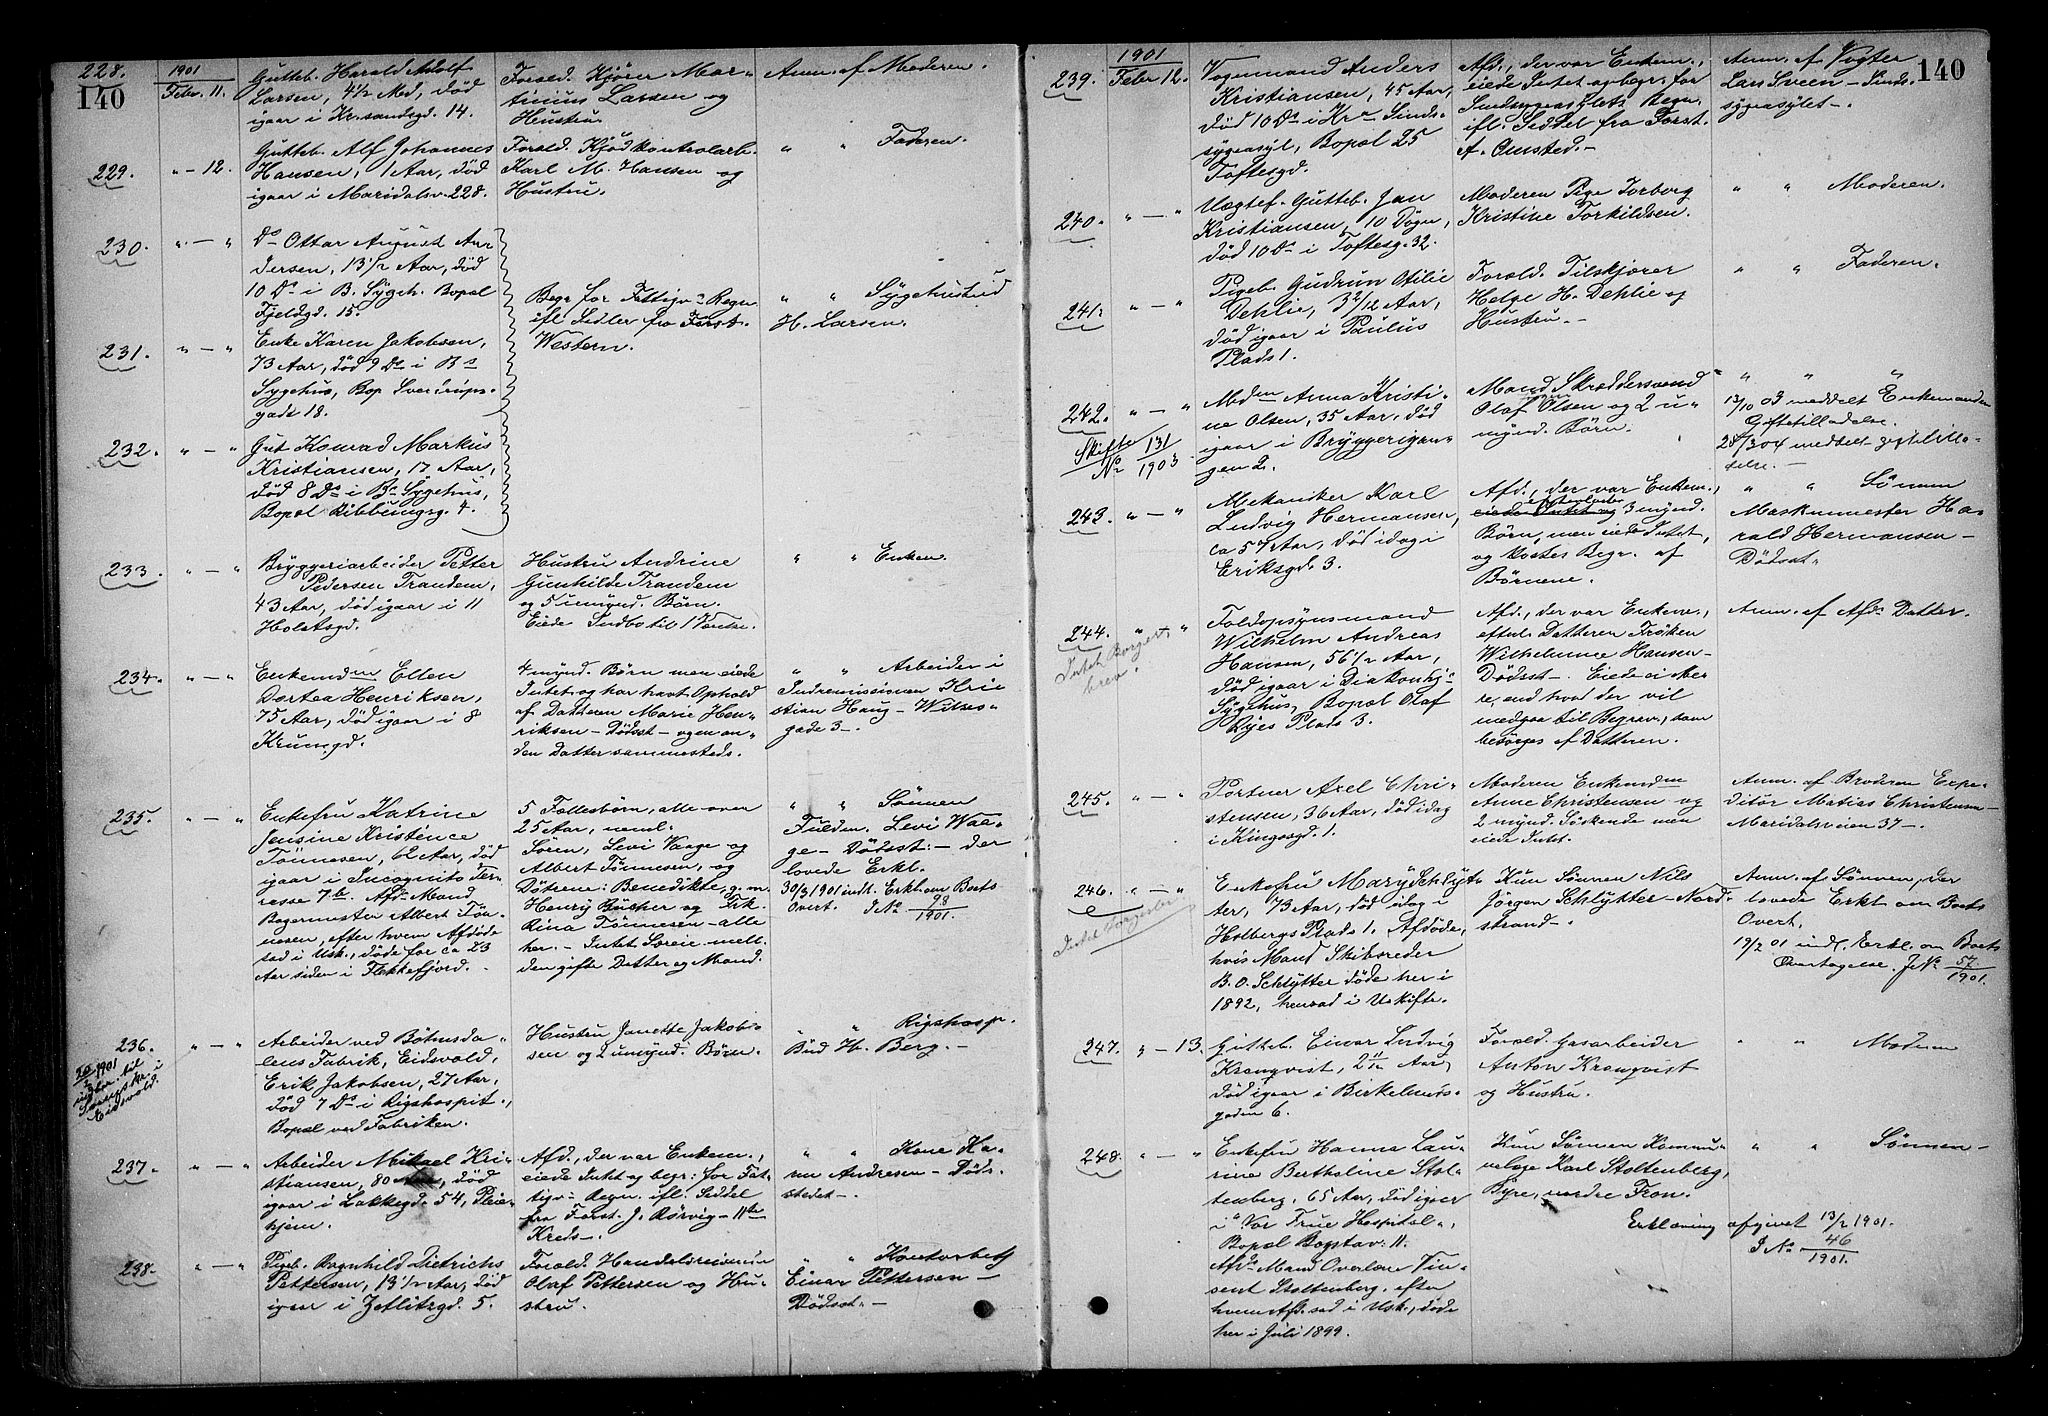 228.
140
1901
Febr. 11.
Gutteb. Harald Adolf
Larsen, 4 1/2 Md, død
igaar i Kr.sandsgd. 14.
Foræld. Kjører Mar-
tinius Larsen og
Hustru.
Anm. af Moderen.
229.
" - 12.
Gutteb. Alf Johannes
Hansen, 1 Aar, død
igaar i Maridalsv. 228.
Foræld. Kjødkontrolarb.
Karl M. Hansen og
Hustru.
" " Faderen.
230.
" — "
Do Ottar August An-
dersen, 13 1/2 Aar, død
10 Ds i B. Sygeh. Bopæl
Fjeldgd. 15.
Begr. for Fattigv. Regn.
ifl. Sedler fra Forst.
Western.
" " Sygehusbud
H. Larsen.
231.
" — "
Enke Karen Jakobsen,
73 Aar, død 9 Ds i Bs
Sygehus, Bop. Sverdrups-
gade 18.
232.
" — "
Gut Konrad Markus
Kristiansen, 17 Aar,
død 8 Ds i Bs Sygehus,
Bopæl Ribbungsg. 4.
233.
" — "
Bryggeriarbeider Petter
Pedersen Trandem,
43 Aar, død igaar i 11
Holstsgd.
Hustru Andrine
Gunhilde Trandem
og 5 umynd. Børn.
Eiede Indbo til 1 Værelse.
" " Enken.
234.
" — "
Enkemdm Ellen
Dortea Henriksen,
75 Aar, død igaar i 8
Krumgd.
4 mynd. Børn men eiede
Intet og har havt Ophold
af Datteren Marie Hen-
riksen - Dødsst - og en an-
den Datter sammesteds.
" " Arbeider i
Indremissionen Kri-
stian Haug - Wilses-
gade 3 -.
235.
" — "
Enkefru Katrine
Jensine Kristence
Tönnesen, 62 Aar, død
igaar i Incognito Ter-
rasse 7b. Afd. Mand
Bagermester Albert Tøn-
nesen, efter hvem Afdøde
sad i Usk., døde for ca 23
Aar siden i Flekkefjord.
5 Fællesbørn, alle over
25 Aar, neml.
Søren, Levi Vaage og
Albert Tønnesen, og
Døtrene: Benedikte, g. m.
Henry Bücher og
Rina Tønnesen - alle
her. - Intet Særeie mell.
den gifte Datter og Mand.
" " Sønnen
Fuldm. Levi Waa-
ge - Dødsst: - der
lovede Erkl.
30/3 1901 indk. Erkl. om Boets
Overt. J No 98/1901.
236.
" — "
20/2 1901
indber. til
Sorenskr. i
Eidsvold.
Arbeider ved Bøhnsda-
lens Fabrik, Eidsvold,
Erik Jakobsen, 27 Aar,
død 7 Ds i Rigshospit.,
Bopæl ved Fabriken.
Hustru Janette Jakob-
sen og 2 umynd. Børn.
" " Rigshosp.
Bud H. Berg. -
237.
" — "
Arbeider Mikael Kri-
stiansen, 80 Aar, død
igaar i Lakkegd. 54, Pleie-
hjem.
Afd., der var Enkem.,
eiede Intet og begr. for Fat-
tigv. Regn. ifl. Seddel
fra Forst. J. Rørvig - 11te
Kreds -.
" " Kone Ha-
na Andresen - Døds-
stedet -.
238.
" — "
Pigeb. Ragnhild Dietrichs
Pettersen, 13 1/2 Aar, død
igaar i Zetlitzgd. 5.
Foræld. Handelsreisende
Olaf Pettersen og Hu-
stru.
" " Kontorbetj.
Einar Pettersen -
Dødsst. -
140
1901
239.
Febr 12.
Vognmand Anders
Kristiansen, 45 Aar,
død 10 Ds i Kra Sinds-
sygeasyl, Bopæl 25
Toftesgd.
Afd., der var Enkem.,
eiede Intet og begr. for
Sindssygeasylets Regn.
ifl. Seddel fra Forst.
A. Omsted. -
Anm. af Vogter
Lars Sveen - Sinds-
sygeasylet -.
240.
" — "
Uægtef. Gutteb. Jan
Kristiansen, 10 Døgn,
død 10 Ds i Toftesg. 32.
Moderen Pige Torborg
Kristine Torkildsen.
" " Moderen.
241.
" — "
Pigeb. Gudrun Otilie
Dehlie, 3 2/12 Aar,
død igaar i Paulus
Plads 1.
Foræld. Tilskjærer
Helge H. Dehlie og
Hustru. -
" " Faderen.
242.
" — "
Skifte
No 131/1903
Mdm Anna Kristi-
ne Olsen, 35 Aar, død
igaar i Bryggerigan-
gen 2.
Mand Skræddersvend
Olaf Olsen og 2 u-
mynd. Børn.
" " "
13/10 03 meddelt Enkemanden
Giftetilladelse.
28/3 04 meddelt giftetilla-
delse. -
243.
" — "
Mekaniker Karl
Ludvig Hermansen,
ca 57 Aar, død idag i
Eriksgd. 3.
Afd., der var Enkem.,
efterlader
eiede Intet og 3 mynd.
Børn, men eiede Intet,
og kostes Begr. af
Børnene.
" " Sønnen
Maskinmester Ha-
rald Hermansen -
Dødsst.
244.
" — "
Intet Borger-
brev.
Foldopsynsmand
Wilhelm Andreas
Hansen, 56 1/2 Aar,
død igaar i Diakonhj.
Sygehus, Bopæl Olaf
Ryes Plads 3.
Afd., der var Enkem.,
efterl. Datteren Frøken
Wilhelmine Hansen -
Dødsst -. Eiede ei me-
re, end hvad der vil
medgaa til Begrav., som
besørges af Datteren.
Anm. af Afds Datter.
245.
" — "
Portner Axel Chri-
stensen, 36 Aar, død idag
i Kingosgd. 1.
Moderen Enkemdm
Anne Christensen og
2 mynd. Søskende men
eiede Intet.
Anm. af Broderen Expe-
ditør Matias Christensen -
Maridalsveien 37 -.
246.
" — "
Enkefru Mary Schlyt-
ter, 73 Aar, død idag i
Holbergs Plads 1. Afdøde,
hvis Mand Skibsreder
B. O. Schlytter døde her i
1892, hensad i Uskifte.
Kun Sønnen Nils
Jörgen Schlytter - Nord-
strand -.
Anm. af Sønnen, der
lovede Erkl. om Boets
Overt.
19/2 01 indk. Erkl. om Boets
Overtagelse. J No 57/1901.
247.
" — 13.
Gutteb. Einar Ludvig
Kronqvist, 2 11/12 Aar,
død igaar i Birkelunds-
gaden 6.
Foræld. Gasarbeider
Anton Kronqvist
og Hustru.
" " Moderen
248.
" — "
Enkefru Hanna Lau-
rine Bertholine Stol-
tenberg, 65 Aar, død igaar
i "Vor Frue Hospital",
Bopæl Bogstadv. 11.
Afds Mand Overlære Vin-
sent Stoltenberg, efter
hvem Afd. sad i Usk., døde
her i Juli 1899.
Kun Sønnen Kommu-
nelæge Karl Stoltenberg,
Byre, nordre Fron.
" " Sønnen -
Erklæring afgivet 13/2 1901.
J No 46/1901.